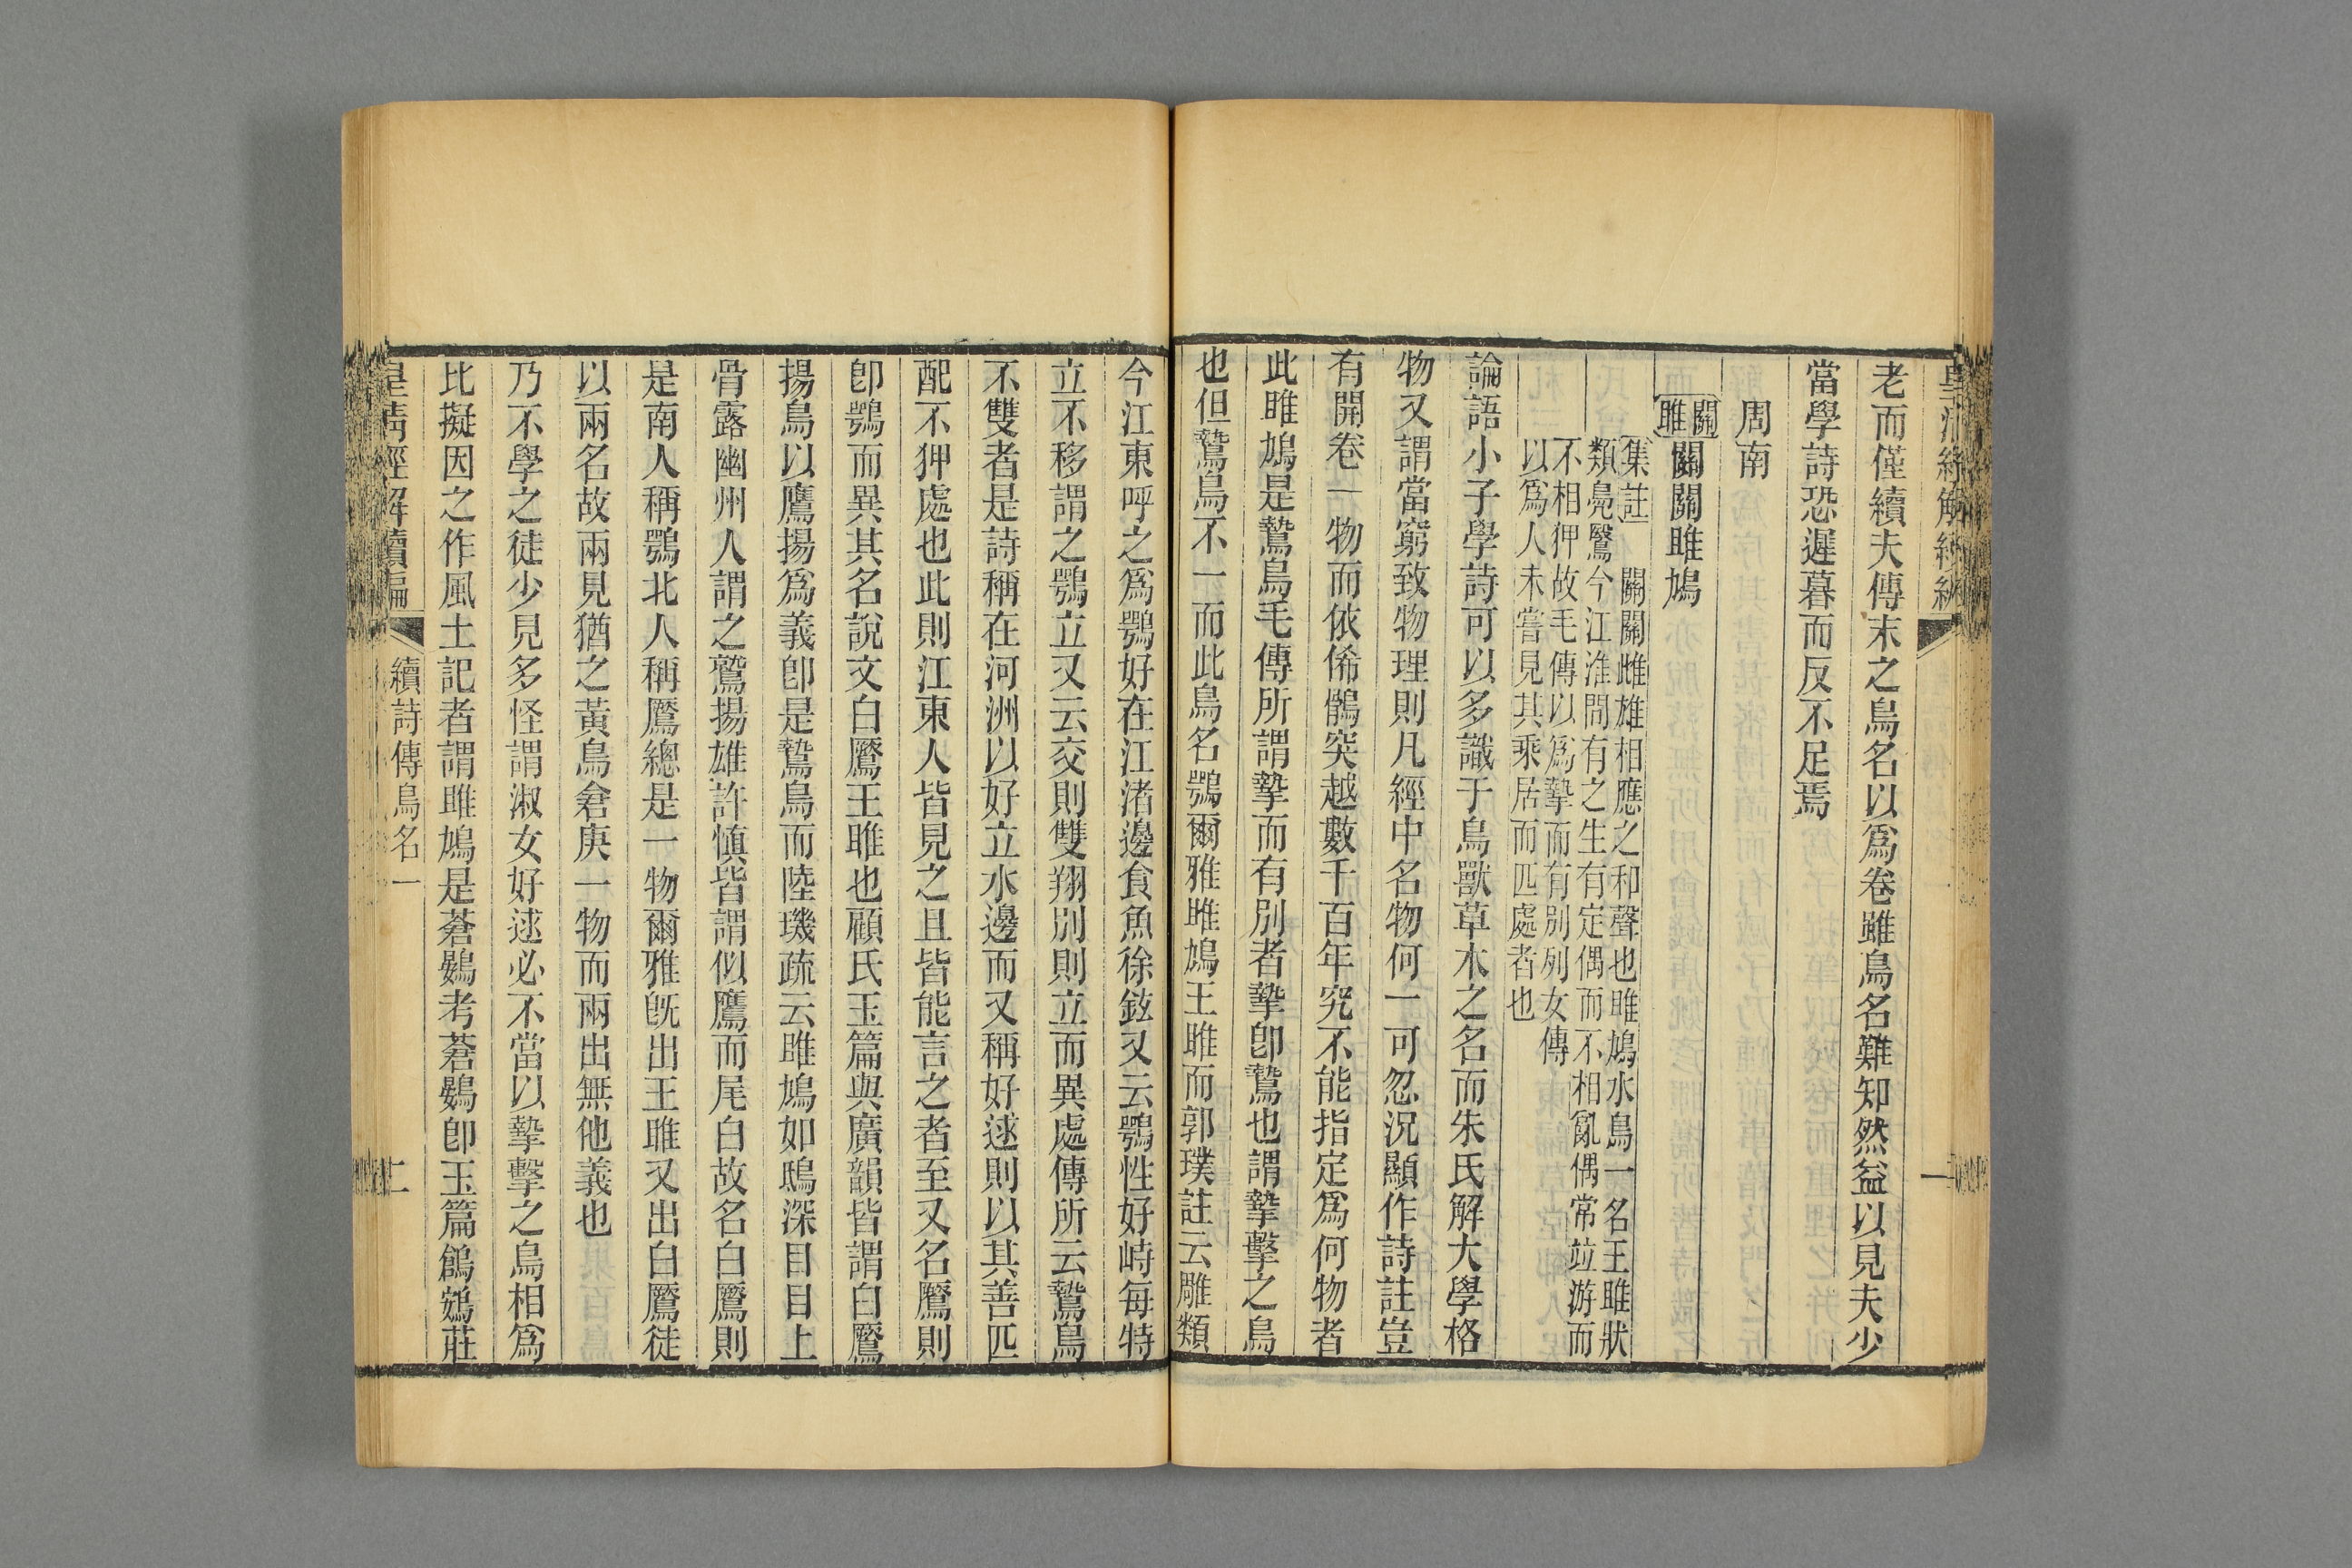 皇清經解續編
一
老而僅續夫傳末之鳥名以爲卷雖鳥名難知然益以見夫少
當學詩恐遲暮而反不足焉
周南
關雎
關關雎鳩
集註 關關雌雄相應之和聲也雎鳩水鳥一名王雎狀
類鳧鷖今江淮閒有之生有定偶而不相亂偶常竝游而
不相狎故毛傳以爲摯而有別列女傳
以爲人未嘗見其乘居而匹處者也
論語小子學詩可以多識于鳥獸草木之名而朱氏解大學格
物又謂當窮致物理則凡經中名物何一可忽況顯作詩註豈
有開卷一物而依俙鶻突越數千百年究不能指定爲何物者
此雎鳩是鷙鳥毛傳所謂摯而有別者摯卽鷙也謂摯擊之鳥
也但鷙鳥不一而此鳥名鶚爾雅雎鳩王雎而郭璞註云雕類
今江東呼之爲鶚好在江渚邊食魚徐鉉又云鶚性好峙每特
立不移謂之鶚立又云交則雙翔別則立而異處傳所云鷙鳥
不雙者是詩稱在河洲以好立水邊而又稱好逑則以其善匹
配不狎處也此則江東人皆見之且皆能言之者至又名鷢則
卽鶚而異其名說文白鷢王雎也顧氏玉篇與廣韻皆謂白鷢
揚鳥以鷹揚爲義卽是鷙鳥而陸璣疏云雎鳩如鴟深目目上
骨露幽州人謂之鷲揚雄許愼皆謂似鷹而尾白故名白鷢則
是南人稱鶚北人稱鷢總是一物爾雅旣出王雎又出白鷢徒
以兩名故兩見猶之黃鳥倉庚一物而兩出無他義也
乃不學之徒少見多怪謂淑女好逑必不當以摯擊之鳥相爲
比擬因之作風土記者謂雎鳩是蒼鷃考蒼鷃卽玉篇鶬鴳莊
皇淸經解續編
續詩傳鳥名一
二